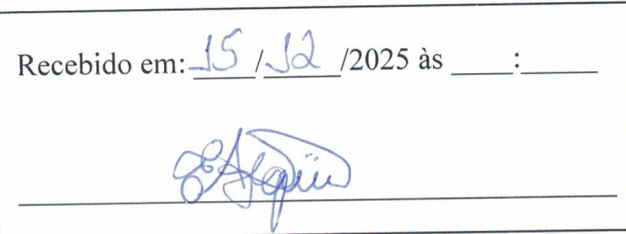 Recebido em: 15/12/2025 às ____:_____